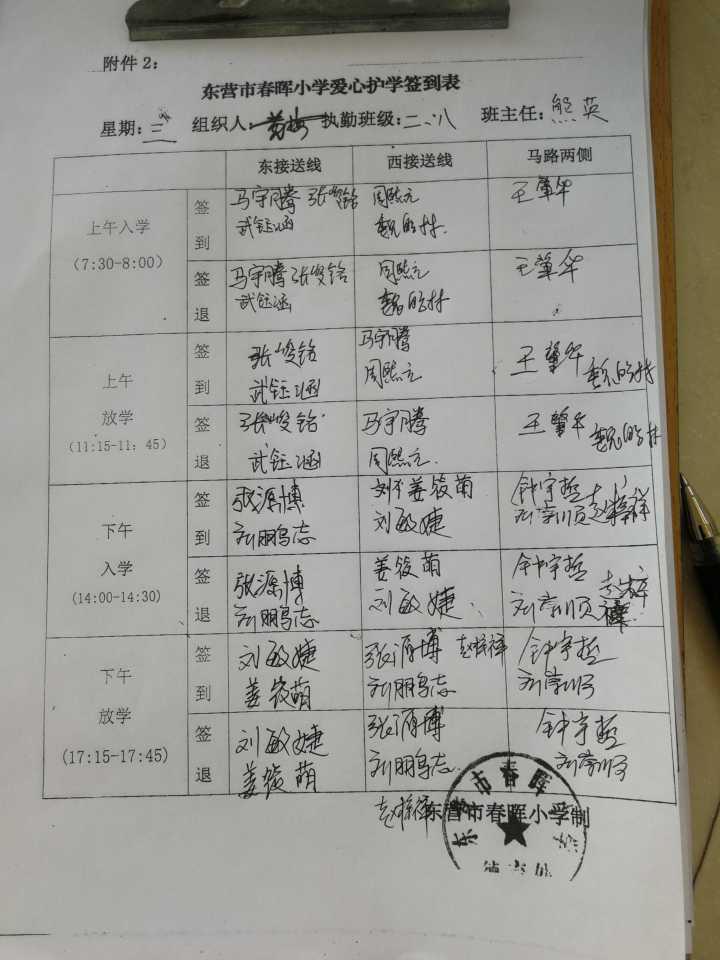 附件 2：
东营市春晖小学爱心护学签到表
星期：三 组织人： 执勤班级：二、八 班主任：熊英
东接送线 西接送线 马路两侧
上午入学
（7:30-8:00）
签到 马宇腾 张峻铭 周熙元 王肇华
武钰涵
签退 马宇腾 张峻铭 周熙元 王肇华
武钰涵
上午
放学
（11:15-11：45）
签到 张峻铭 马宇腾 王肇华
武钰涵 周熙元
签退 张峻铭 马宇腾 王肇华
武钰涵 周熙元
下午
入学
(14:00-14:30)
签到 张源博 姜筱萌 钟宇哲
刘鹏志 刘敏婕
签退 张源博 姜筱萌 钟宇哲
刘鹏志 刘敏婕
下午
放学
(17:15-17:45)
签到 刘敏婕 张源博 赵梓祥 钟宇哲
姜筱萌 刘鹏志
签退 刘敏婕 张源博 钟宇哲
姜筱萌 刘鹏志
赵梓祥
东营市春晖小学制
市春晖